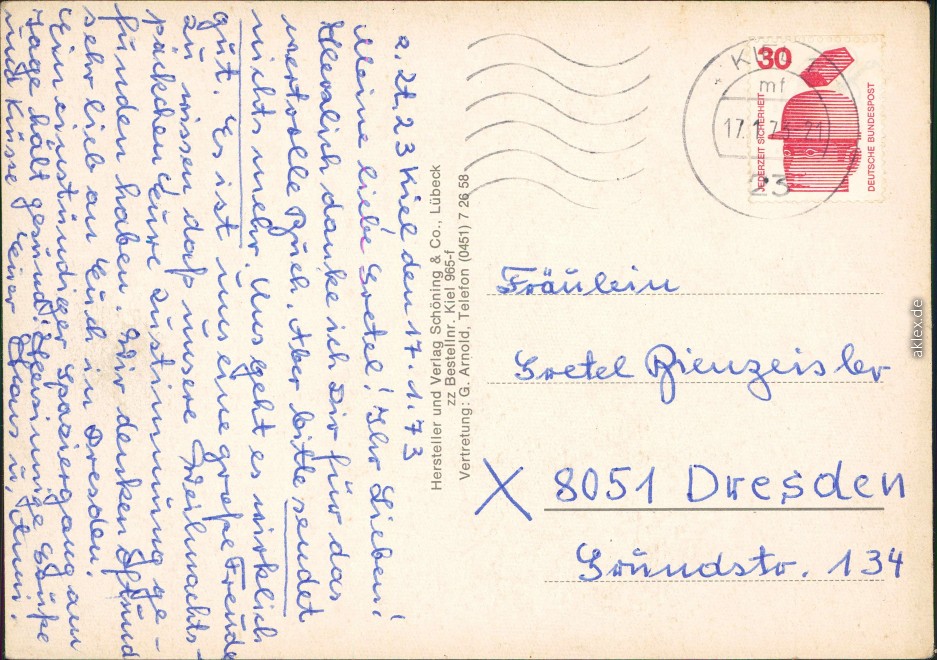 z. Zt. 23 Kiel den 17. 1. 73
Meine liebe Gretel! Ihr Lieben!
Herzlich danke ich Dir für das
wertvolle Buch. Aber bitte sendet
nichts mehr. Uns geht es wirklich
gut. Es ist uns eine große Freude
zu wissen daß unsere Weihnachts-
päckchen Eure Zustimmung ge-
funden haben. Wir denken oft und
sehr lieb an Euch in Dresden.
Ein einstündiger Spaziergang am
Tage hält gesund. Herzinnige Grüße
und Küsse Euer Hans u. Anni.
Hersteller und Verlag Schöning & Co., Lübeck
zz Bestellnr. Kiel 965-f
Vertretung: G. Arnold, Telefon (0451) 7 26 58
KIEL
mf
17.1.73-21
23
30
JEDERZEIT SICHERHEIT
DEUTSCHE BUNDESPOST
Fräulein
Gretel Bienzeisler
X 8051 Dresden
Grundstr. 134
aklex.de